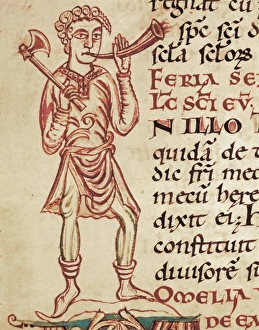 regnat cu
spc̄ sc̄i d
sclā sclor̄
FERIA SE
LC̄ SC̄I EV
N ILLO T
quidā de t
dic fr̄i mec
mecū here
dixit ei; H
constituit
divisorē su
OMELIA
DE EA